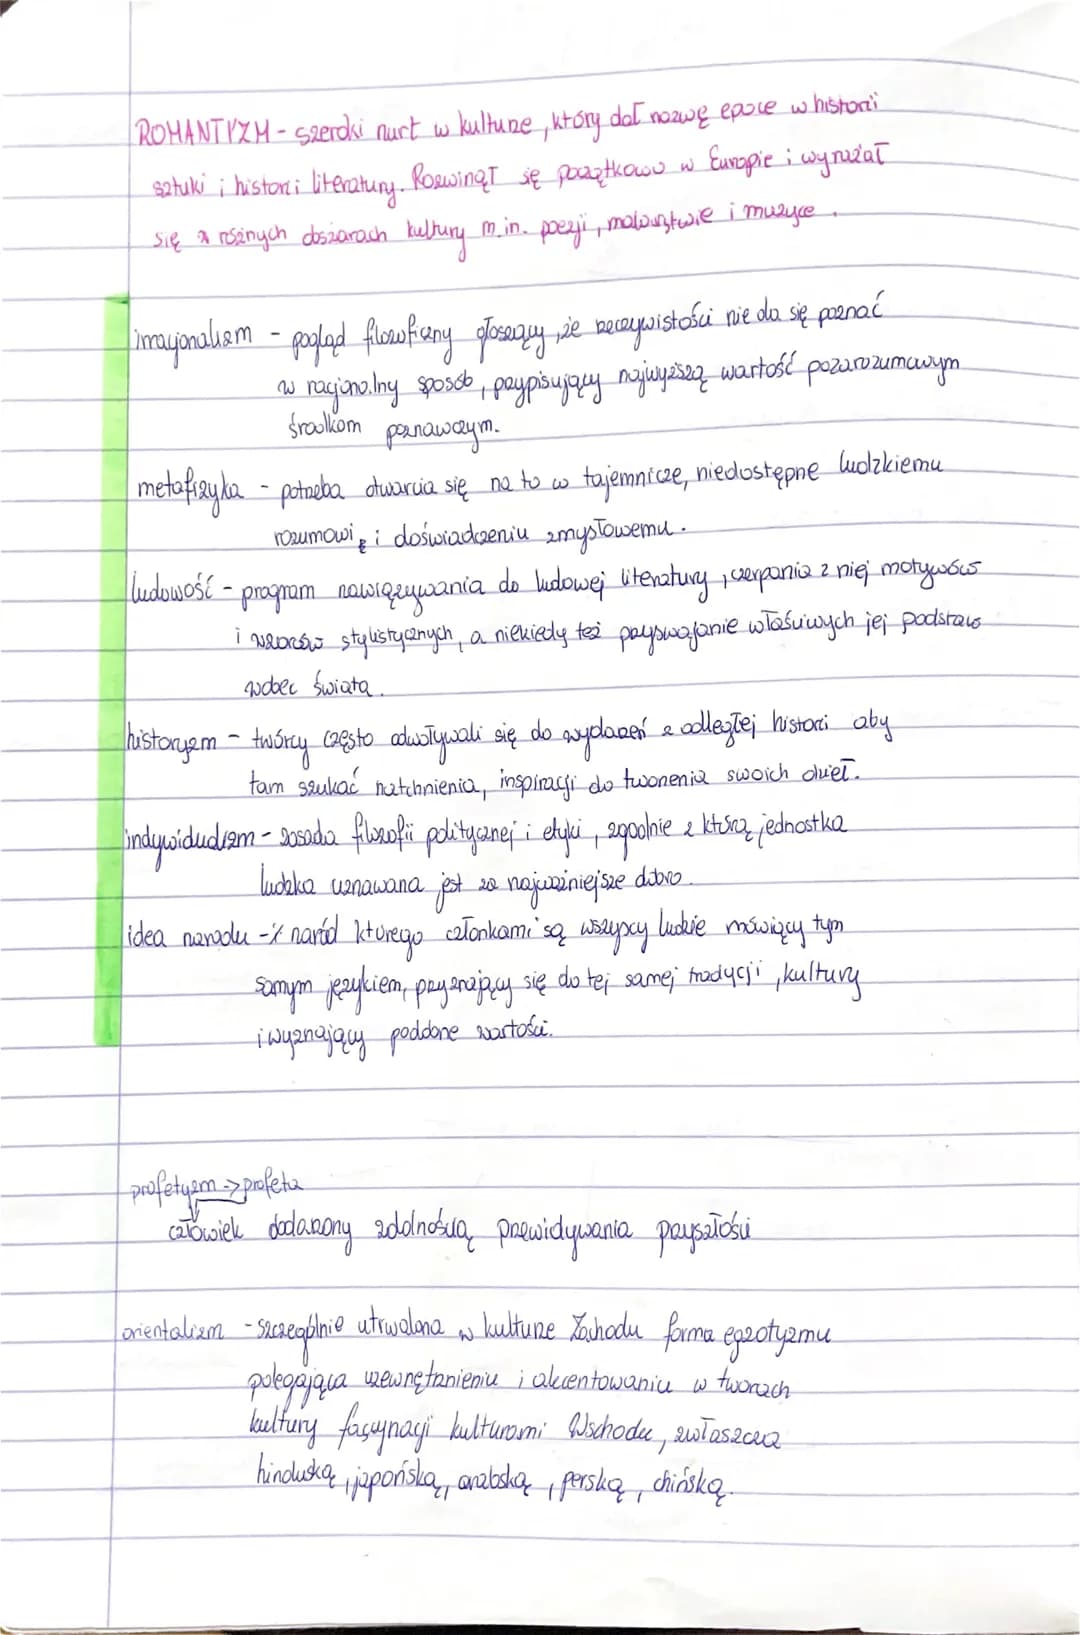 ROMANTYZM - szeroki nurt w kulturze, który dał nazwę epoce w historii
sztuki i historii literatury. Rozwinął się początkowo w Europie i wyrażał
się w różnych obszarach kultury m.in. poezji, malarstwie i muzyce.
irracjonalizm - pogląd filozoficzny głoszący, że rzeczywistości nie da się poznać
w racjonalny sposób, przypisujący najwyższą wartość pozarozumowym
środkom poznawczym.
metafizyka - potrzeba otwarcia się na to co tajemnicze, niedostępne ludzkiemu
rozumowi i doświadczeniu zmysłowemu.
ludowość - program nawiązywania do ludowej literatury, czerpania z niej motywów
i wzorców stylistycznych, a niekiedy też przyswajanie właściwych jej podstaw
wobec świata.
historyzm - twórcy często odwoływali się do wydarzeń z odległej historii aby
tam szukać natchnienia, inspiracji do tworzenia swoich dzieł.
indywidualizm - zasada filozofii politycznej i etyki, zgodnie z którą jednostka
ludzka uznawana jest za najważniejsze dobro.
idea narodu - naród którego członkami są wszyscy ludzie mówiący tym
samym językiem, przyznający się do tej samej tradycji, kultury
i wyznający podobne wartości.
profetyzm -> profeta
człowiek dodarzony zdolnością przewidywania przyszłości
orientalizm - szczególnie utrwalona w kulturze Zachodu forma egzotyzmu
polegająca uzewnętrznieniu i akcentowaniu w tworach
kultury fascynacji kulturami Wschodu, zwłaszcza
hinduską, japońską, arabską, perską, chińską.